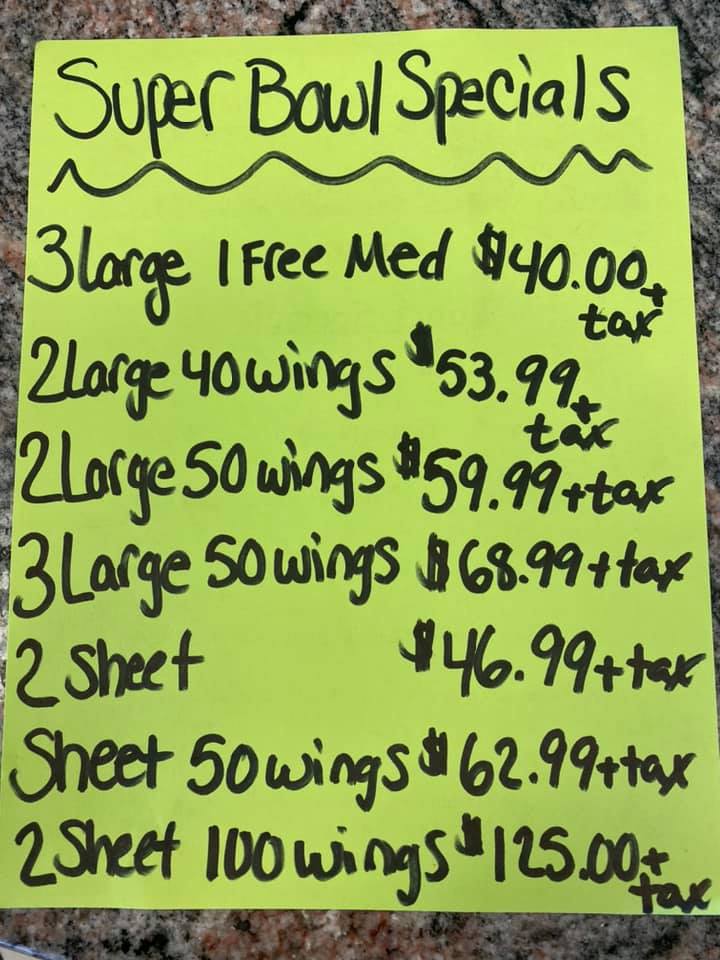 Super Bowl Specials
3 large 1 Free Med $40.00+
tax
2 Large 40 wings $53.99+
tax
2 Large 50 wings $59.99+tax
3 Large 50 wings $68.99+tax
2 sheet $46.99+tax
Sheet 50 wings $62.99+tax
2 Sheet 100 wings $125.00+
tax